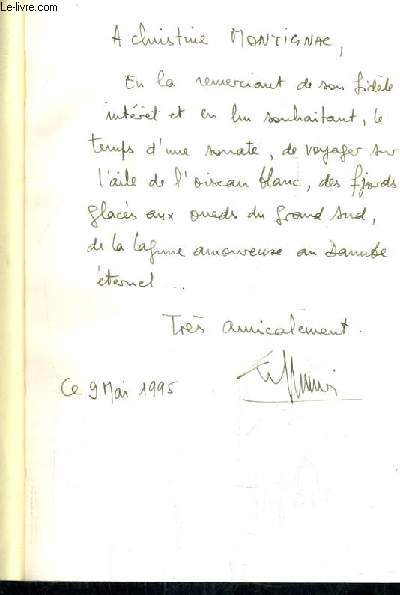 © Le-livre.com
A Christine MONTIGNAC,
En la remerciant de son fidèle
intérêt et en lui souhaitant, le
temps d'une sonate, de voyager sur
l'aile de l'oiseau blanc, des fjords
glacés aux oueds du grand Sud,
de la lagune amoureuse au Danube
éternel...
Très amicalement.
Ce 9 Mai 1995
© Le-livre.com